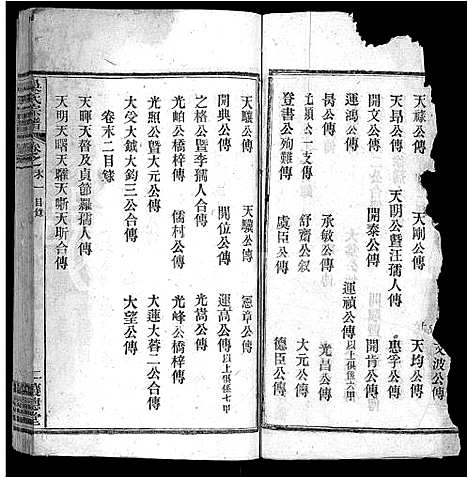 文波公傳
天祿公傳 天剛公傳 天均公傳
天昂公傳 天明公暨汪孺人傳 惠孚公傳
開文公傳 開泰公傳 開肯公傳
運鴻公傳 運禎公傳以上俱係六甲
曷公傳 承敏公傳 光昌公傳
公一支傳 舒齋公叙 大元公傳
登書公殉難傳 虞臣公傳 德臣公傳
天驥公傳 天驥公傳 章公傳
開典公傳 開位公傳 運高公傳以上俱係七甲
之格公暨李孺人合傳 光嵩公傳
光岵公橋梓傳 儒村公傳 光峰公橋梓傳
光照公暨大元公傳 大蓮大蓉二公合傳
大受大鉞大鈞三公合傳 大望公傳
卷末二目錄
天暉天晉及貞節羅孺人傳
天明天曙天躍天晰天昕合傳
卷之末一目錄